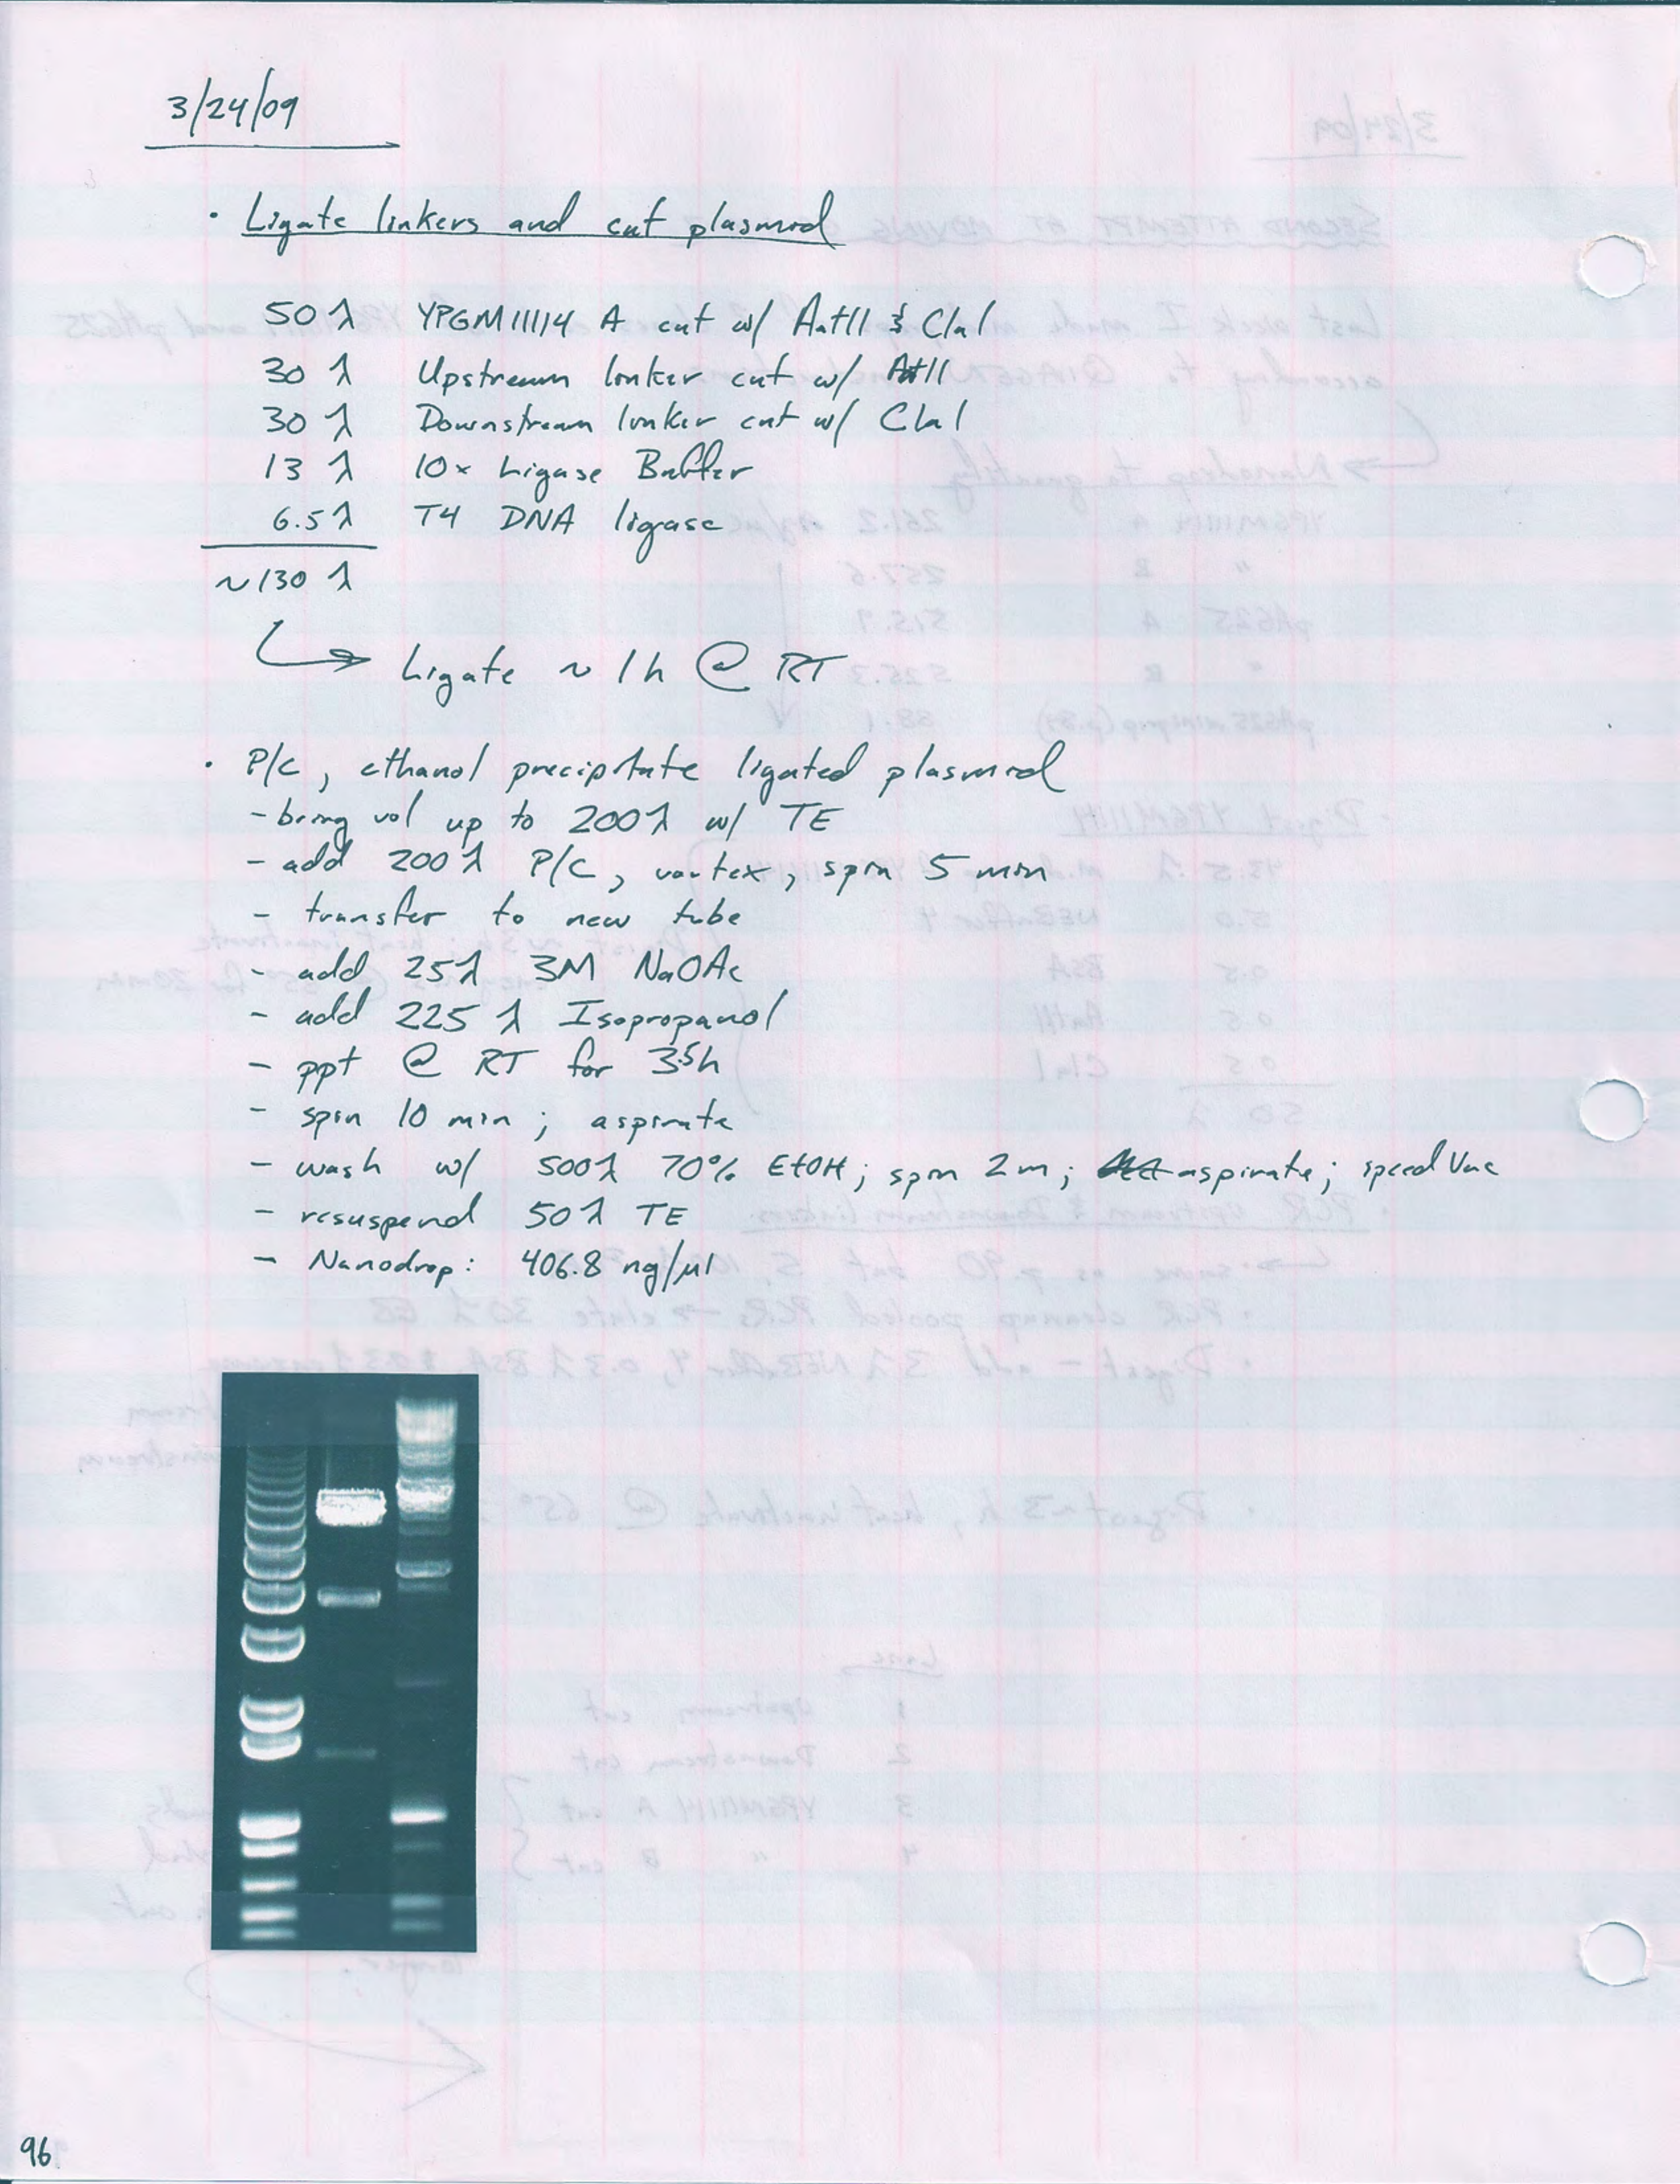 3/24/09
· Ligate linkers and cut plasmid
50 λ YPGM11114 A cut w/ AatII & ClaI
30 λ Upstream linker cut w/ AatII
30 λ Downstream linker cut w/ ClaI
13 λ 10x Ligase Buffer
6.5 λ T4 DNA ligase
~130 λ
Ligate ~ 1h @ RT
· P/C, ethanol precipitate ligated plasmid
- bring vol up to 200λ w/ TE
- add 200λ P/C, vortex, spin 5 min
- transfer to new tube
- add 25λ 3M NaOAc
- add 225 λ Isopropanol
- ppt @ RT for 3.5h
- spin 10 min; aspirate
- wash w/ 500λ 70% EtOH; spin 2m; aspirate; speed Vac
- resuspend 50λ TE
- Nanodrop: 406.8 ng/µl
96